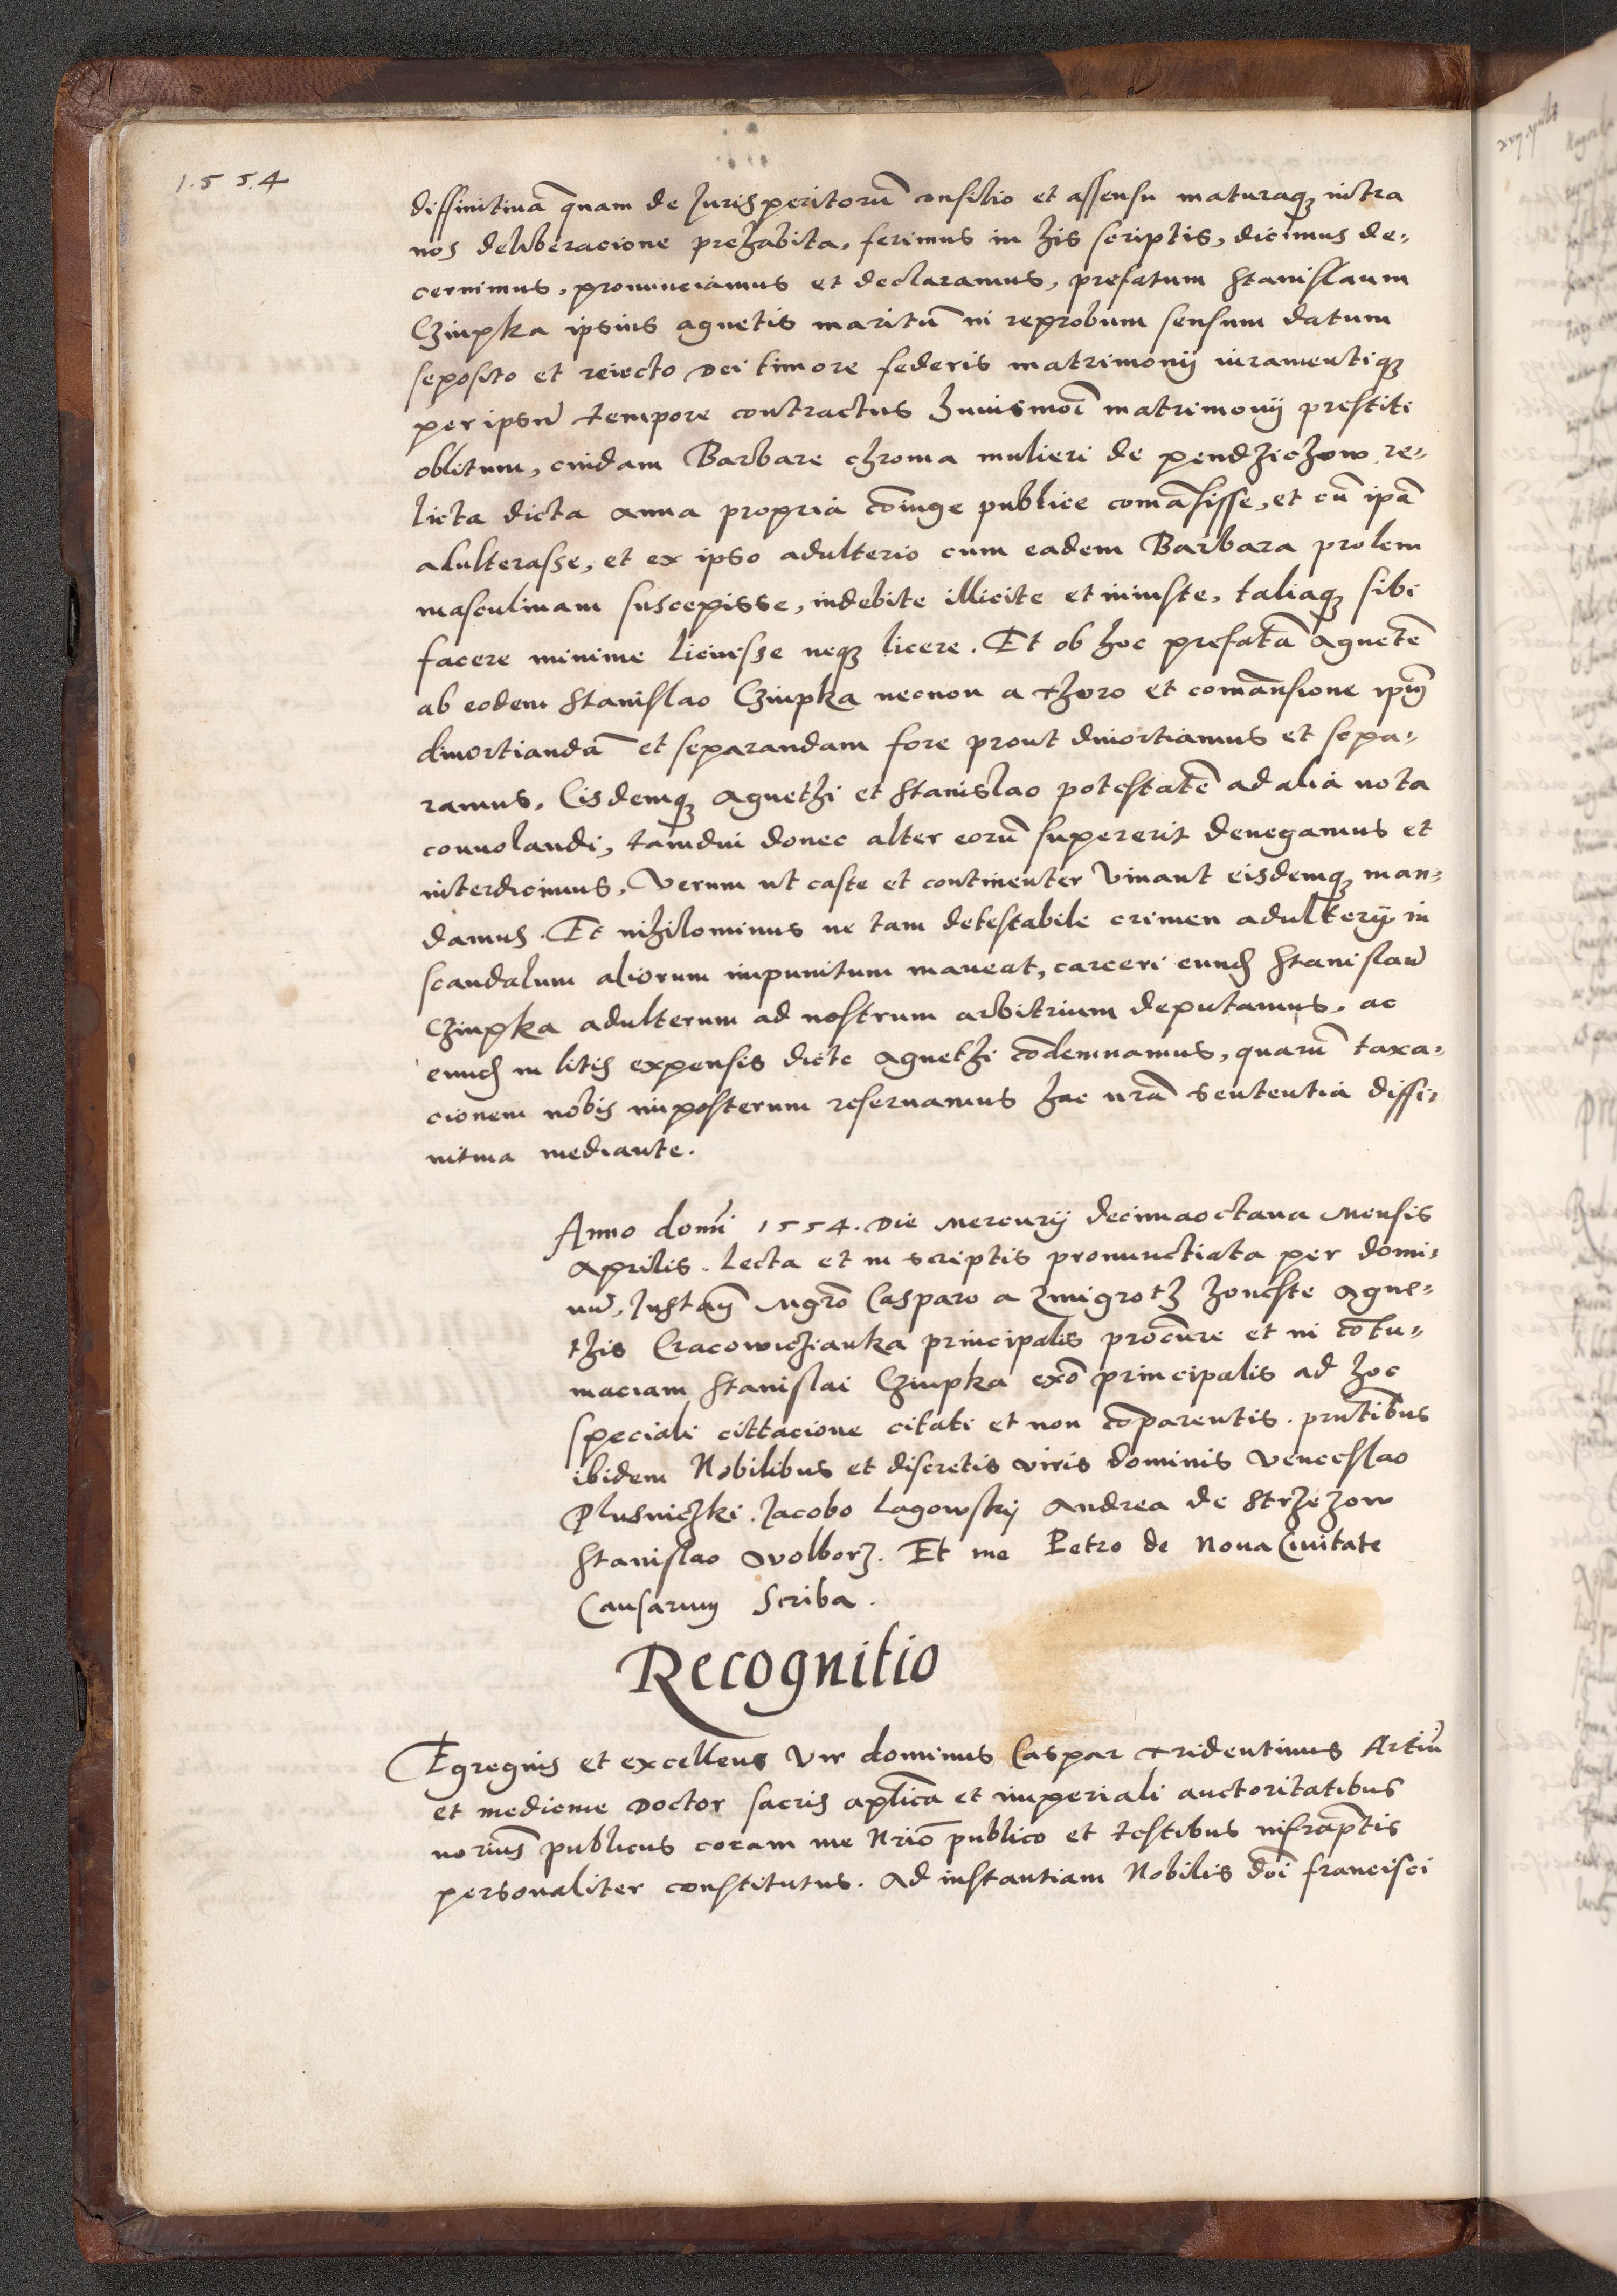 1.5 5.4
diffinitiuã quam de Jurisperitorũ consilio et assensu maturaq₃ intra
nos deliberacione prehabita, ferimus in his scriptis, dicimus de⸗
cernimus, pronunciamus et declaramus, prefatum Stanislaum
Cziupka ipsius agnetis maritũ in reprobum sensum datum
seposito et reiecto Dei timore federis matrimonij iuramentiq₃
per ipsũ tempore contractus huiusmoi matrimonij prestiti
oblitum, cuidam Barbare chroma mulieri de pendzichow, re⸗
licta dicta Anna propria cõiuge publice comãsisse, et cũ ipã
adulterasse, et ex ipso adulterio cum eadem Barbara prolem
masculinam suscepisse, indebite illicite et iniuste, taliaq₃ sibi
facere minime licuisse neq₃ licere. Et ob hoc prefatã Agnetẽ
ab eodem Stanislao Cziupka necnon a thoro et comansione ipius
diuortiandã et separandam fore prout diuortiamus et sepa⸗
ramus. Eisdemq₃ Agnethi et Stanislao potestatẽ ad alia uota
conuolandi, tamdiu donec alter eorũ supererit denegamus et
interdicimus. Verum ut caste et continenter Viuant eisdemq₃ man⸗
damus. Et nihilominus ne tam detestabile crimen adulterij in
scandalum aliorum impunitum maneat, carceri eund Stanislaũ
Cziupka adulterum ad nostrum arbitrium deputamus, ac
eund in litis expensis dicte Agnethi cõdemnamus, quarũ taxa⸗
cionem nobis imposterum reseruamus hac nrã sententia diffi⸗
nitiua mediante.
Anno domi 1554. Die Mercurij decimaoctaua Mensis
Aprilis. Lecta et in scriptis pronunctiata per domi⸗
nũ, Instan Mgrõ Casparo a Zmigrotz honeste Agne⸗
this Cracowiczianka principalis procure et in cõtu⸗
maciam Stanislai Cziupka exõ principalis ad hoc
speciali cittacione citati et non cõparentis. pntibus
ibidem Nobilibus et discretis viris dominis Venceslao
Plusniczki. Jacobo Lagowskij Andrea de Strzezow
Stanislao Wolborz. Et me Petro de Noua Ciuitate
Causarum Scriba.
Recognitio
Egregius et excellens Vir dominus Caspar Tridentinus Artiũ
et medicine Doctor sacris aplica et imperiali auctoritatibus
norius publicus coram me Nrio publico et testibus infraptis
personaliter constitutus. Ad instantiam Nobilis doi francisci